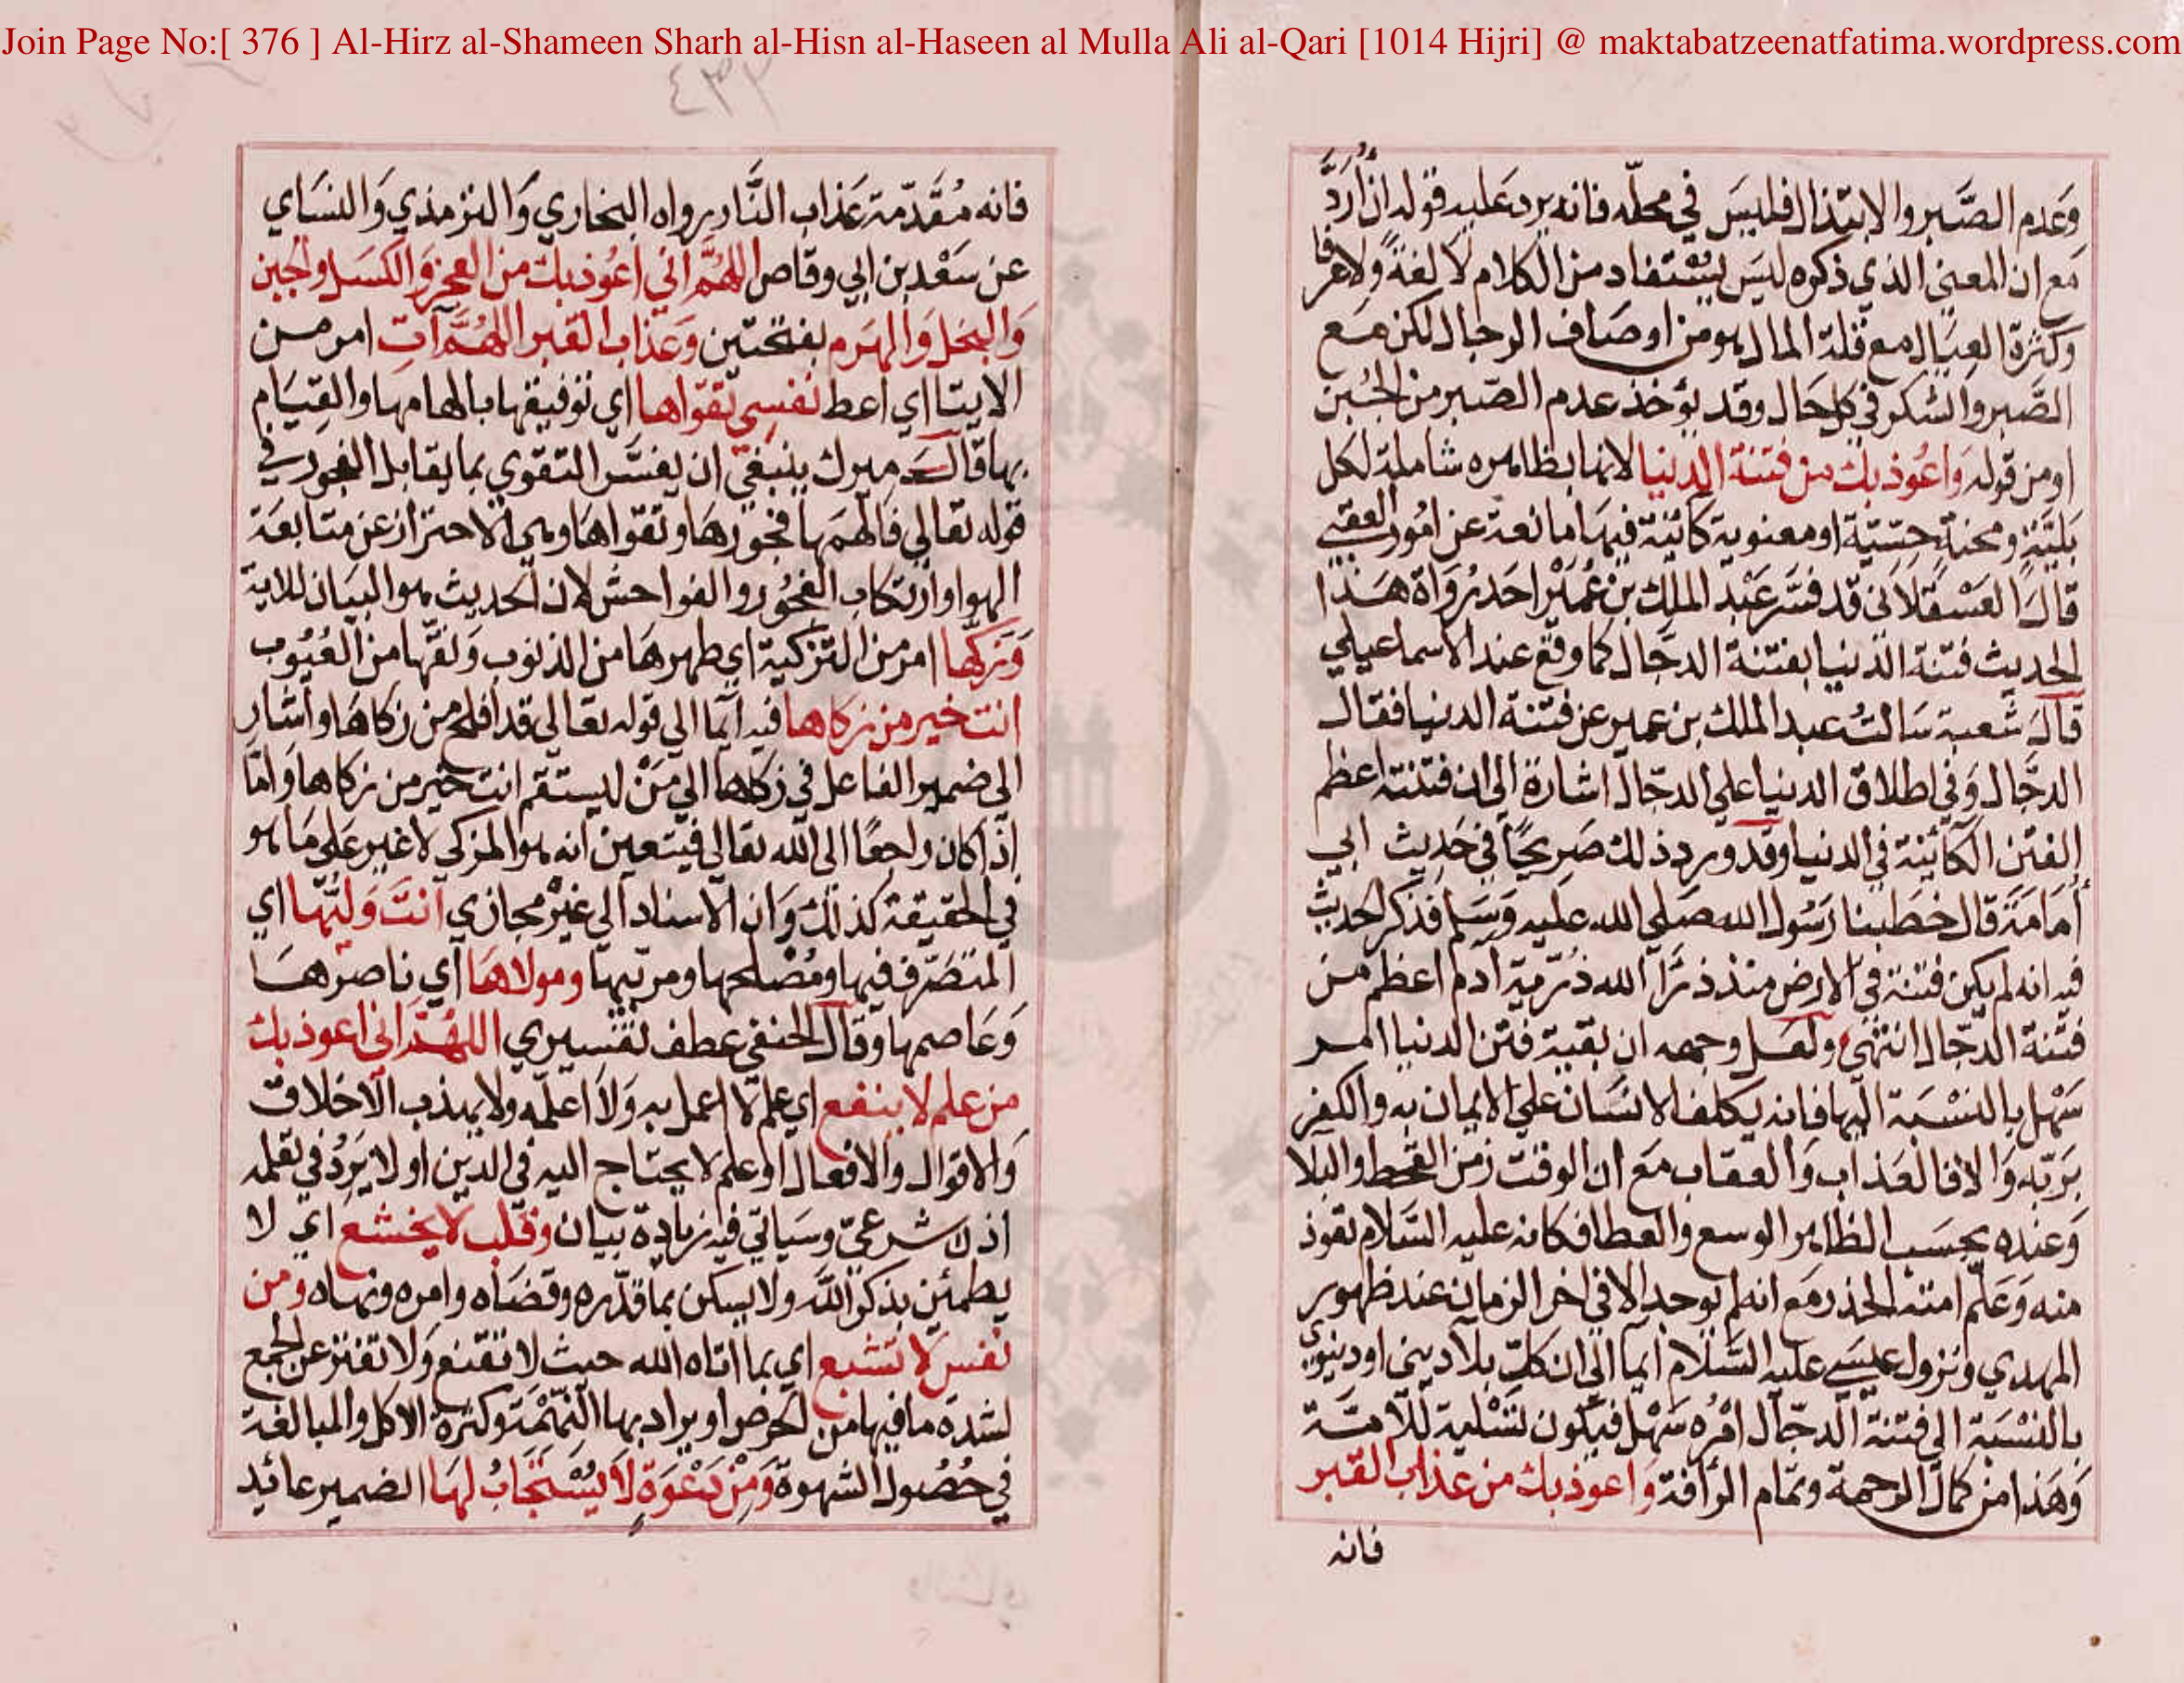 Join Page No:[ 376 ] Al-Hirz al-Shameen Sharh al-Hisn al-Haseen al Mulla Ali al-Qari [1014 Hijri] @ maktabatzeenatfatima.wordpress.com
وَعَدم الصَّبر والابتذال فليسَ في محلّه فانه يرد عَليه قوله ان أُرَدَّ
مَع ان المعنى الذي ذكره ليسَ يُسْتفاد من الكلام لا لغةً ولا عرفا
وكثرة العيَال مع قلة المال هو من اوصَاف الرجال لكن مَع
الصَّبر والشكر في كل حَال وقد يؤخذ عدم الصّبر من الجُبن
او من قوله وَاعُوذ بك من فتنة الدنيا لانها بظاهره شاملة لكل
بَليَّةٍ ومحنةٍ حِسّيّة او معنوية كائنة فيهَا مانعة عن امُور العقبى
قالَ العَسْقَلاني قد فسَّر عَبْد الملِك بن عُمَيْر احَد رُوَاة هَذا
الحديث فتنة الدنيا بفتنة الدجّال كما وقع عند الاسماعيلي
قالَ شعبة سَالتُ عبد الملك بن عمير عن فتنة الدنيا فقال
الدجّال وَفي اطلاق الدنيا على الدجّال اشارة الى ان فتنته اعظم
الفتن الكائنة في الدنيا وقد ورد ذلك صَريحًا في حَديث ابي
أُمَامَةَ قال خطبنا رَسُول الله صَلي الله عليه وَسَلم فذكر الحديث
فيه انه لم يكن فتنة في الارض منذ ذَرَأَ الله ذرّية آدم اعظم من
فتنة الدجّال انتهى ولعَل وجهه ان بقية فتن الدنيا امر
سَهْل بالنسْبَة اليها فانه يكلف الانسَان على الايمان به والكفر
بَربّه وَالا فالعَذاب وَالعقاب مَع ان الوقت زمن القحط والبلا
وَعنده بحسَب الظاهر الوسع والعطا فكانه عليه السَّلام تعوذ
منه وَعَلّم امته الحذر مَع انه لم يوجد الا في اخر الزمان عند ظهور
المهدي ونزول عيسَى عليه السَّلام ايما الى ان كلّ بلا ديني او دنيويّ
بالنسْبَة الى فتنة الدجّال امْرُه سَهْل فيكون تَسْلية للامّة
وَهَذا من كمال الرحمة وتمام الرأفة واعوذ بك من عذاب القبر
فانه
٤٣٢
فانه مُقَدّمة عَذاب النَّار رواه البخاري وَالترمذي وَالنسَاي
عن سَعْد بن ابي وقاص اللهُمَّ اني اعُوذ بك من العجز وَالكسَل والجبن
وَالبخل وَالهرَم بفتحتين وَعَذاب القبر اللهُمَّ آتِ امر من
الايتا اي اعط نفسِي تقوَاها اي توفيقها بالهامها والقيَام
بها قالَ ميرك ينبغي ان يفسَّر التقوي بما يقابل الفجور في
قوله تعالي فَالهَمَها فجورهَا وتقواهَا وهي الاحتراز عن متابعَة
الهوا وارتكاب الفجُور والفواحش لان الحديث هو البيَان للاية
وَزكّها امر من التزكية اي طهرهَا من الذنوب وَنقّها من العُيُوب
انت خير من زكاها فيه ايما الى قوله تعالي قد افلح من زكاهَا واشار
الى ضمير الفاعل في زكاها الى مَنْ ليستقم انت خير من زكاها وَامّا
اذا كان راجعًا الى الله تعالي فيتعين انه هو المزكي لا غير عَلى مَا هو
في الحقيقة كذلك وَان الاسناد الى غيْر مجازي انتَ وَليُّها اي
المتَصَرّف فيها ومُصْلحها ومربّيها ومولاهَا اي ناصرهَا
وَعَاصمها وَقال الحنفي عطف تفسيري اللهُمّ اني اعوذ بك
من علم لا ينفع اي علم لا اعمل به وَلا اعلّمه ولا يهذب الاخلاق
وَالاقوال والافعال او علم لا يحتاج اليه في الدين او لا يَردُ في تعلمه
اذن شرعيّ وسيَاتي فيه زيادة بيَان وقلب لا يخشع اي لا
يطمئن بذكر الله ولا يسكن بما قدّره وقضَاه وامره ونهاه ومن
نفس لا تشبع اي بما اتاه الله حيث لا تقنع وَلا تفتر عن الجمع
لشدة ما فيها من الحرص او يراد بها النَّهْمَة وكثرة الاكل والمبالغة
في حُصُول الشهوة وَمِنْ دَعْوَةٍ لَا يُسْتجَابُ لهَا الضمير عائد